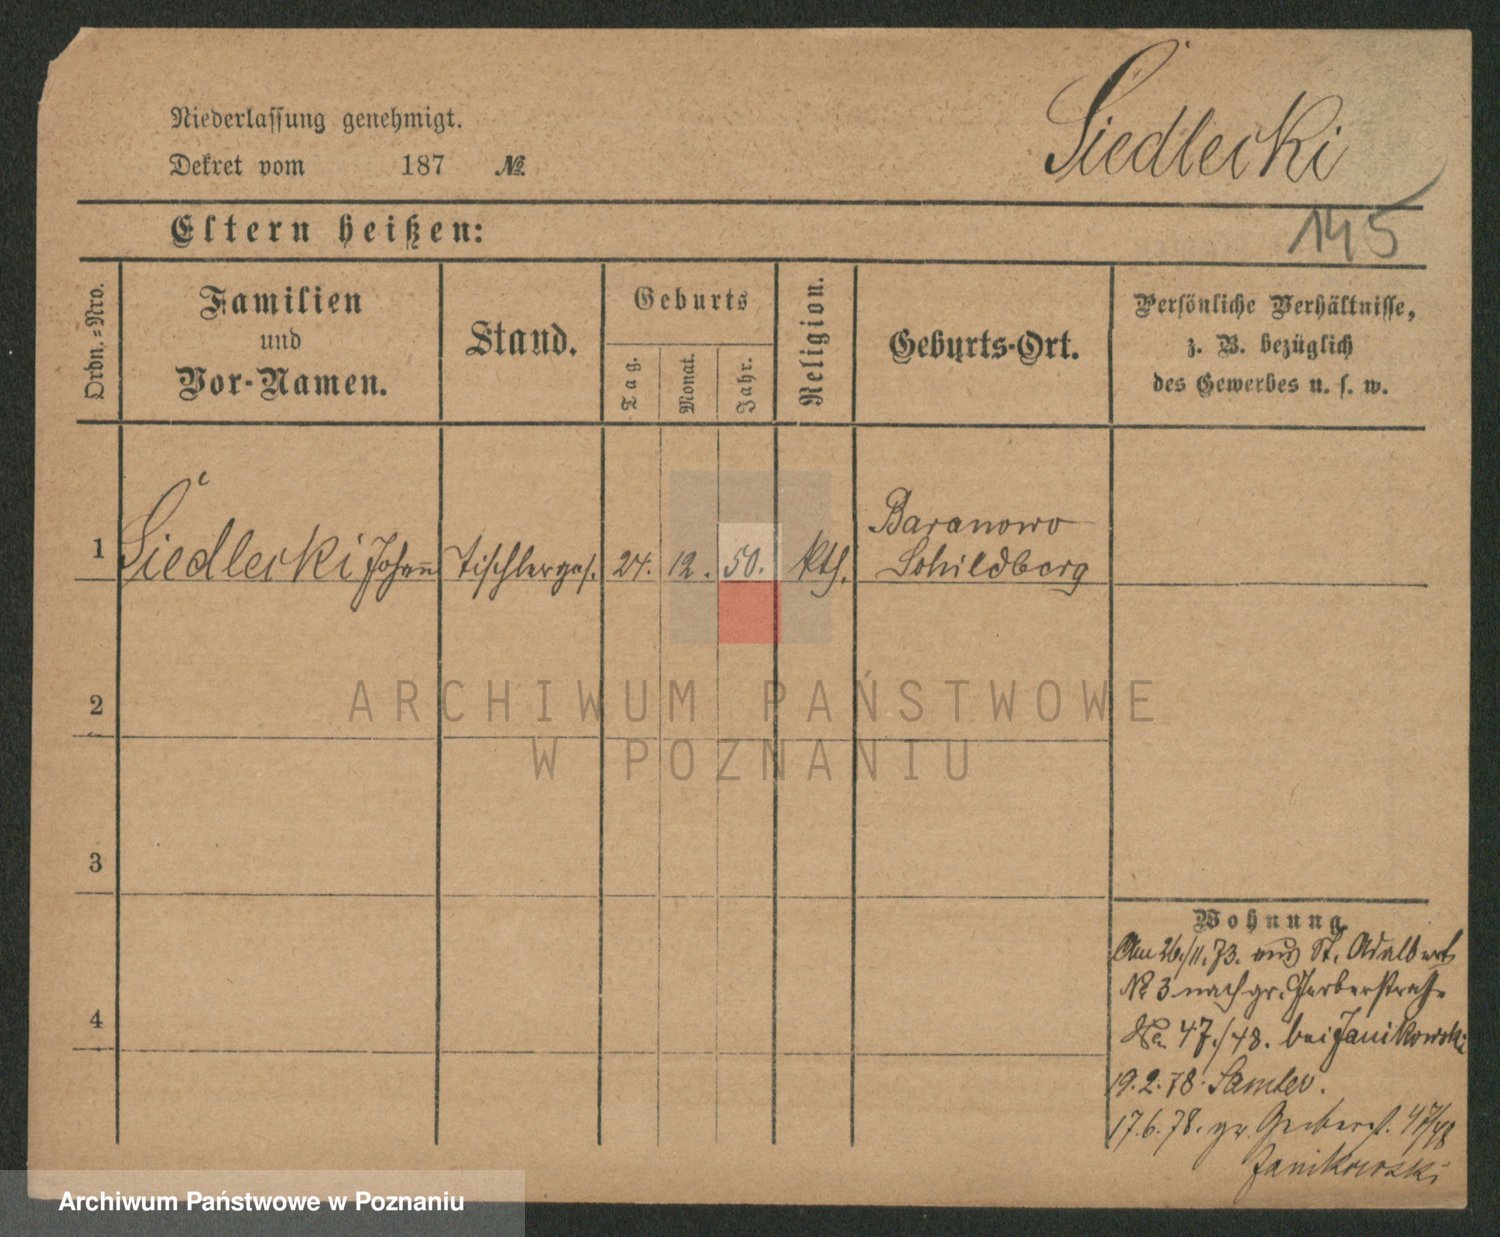 Siedlecki
Niederlassung genehmigt.
Dekret vom 187 №
145
Eltern heißen:
Ordn.-Nro.
Familien
und
Vor-Namen.
Stand.
Geburts
Tag.
Monat.
Jahr.
Religion.
Geburts-Ort.
Persönliche Verhältnisse,
z. B. bezüglich
des Gewerbes u. s. w.
1 Siedlecki Johann Tischlerges. 24. 12. 50. kth. Baranowo
Schildberg
2
3
4
Wohnung
Am 26./11.73. aus St. Adalbert
№ 3 nach gr. Gerberstraße
No 47./48. bei Janikowski
19.2.78. Samter.
17.6.78. gr. Gerberst. 47/48
Janikowski
ARCHIWUM PAŃSTWOWE
W POZNANIU
Archiwum Państwowe w Poznaniu